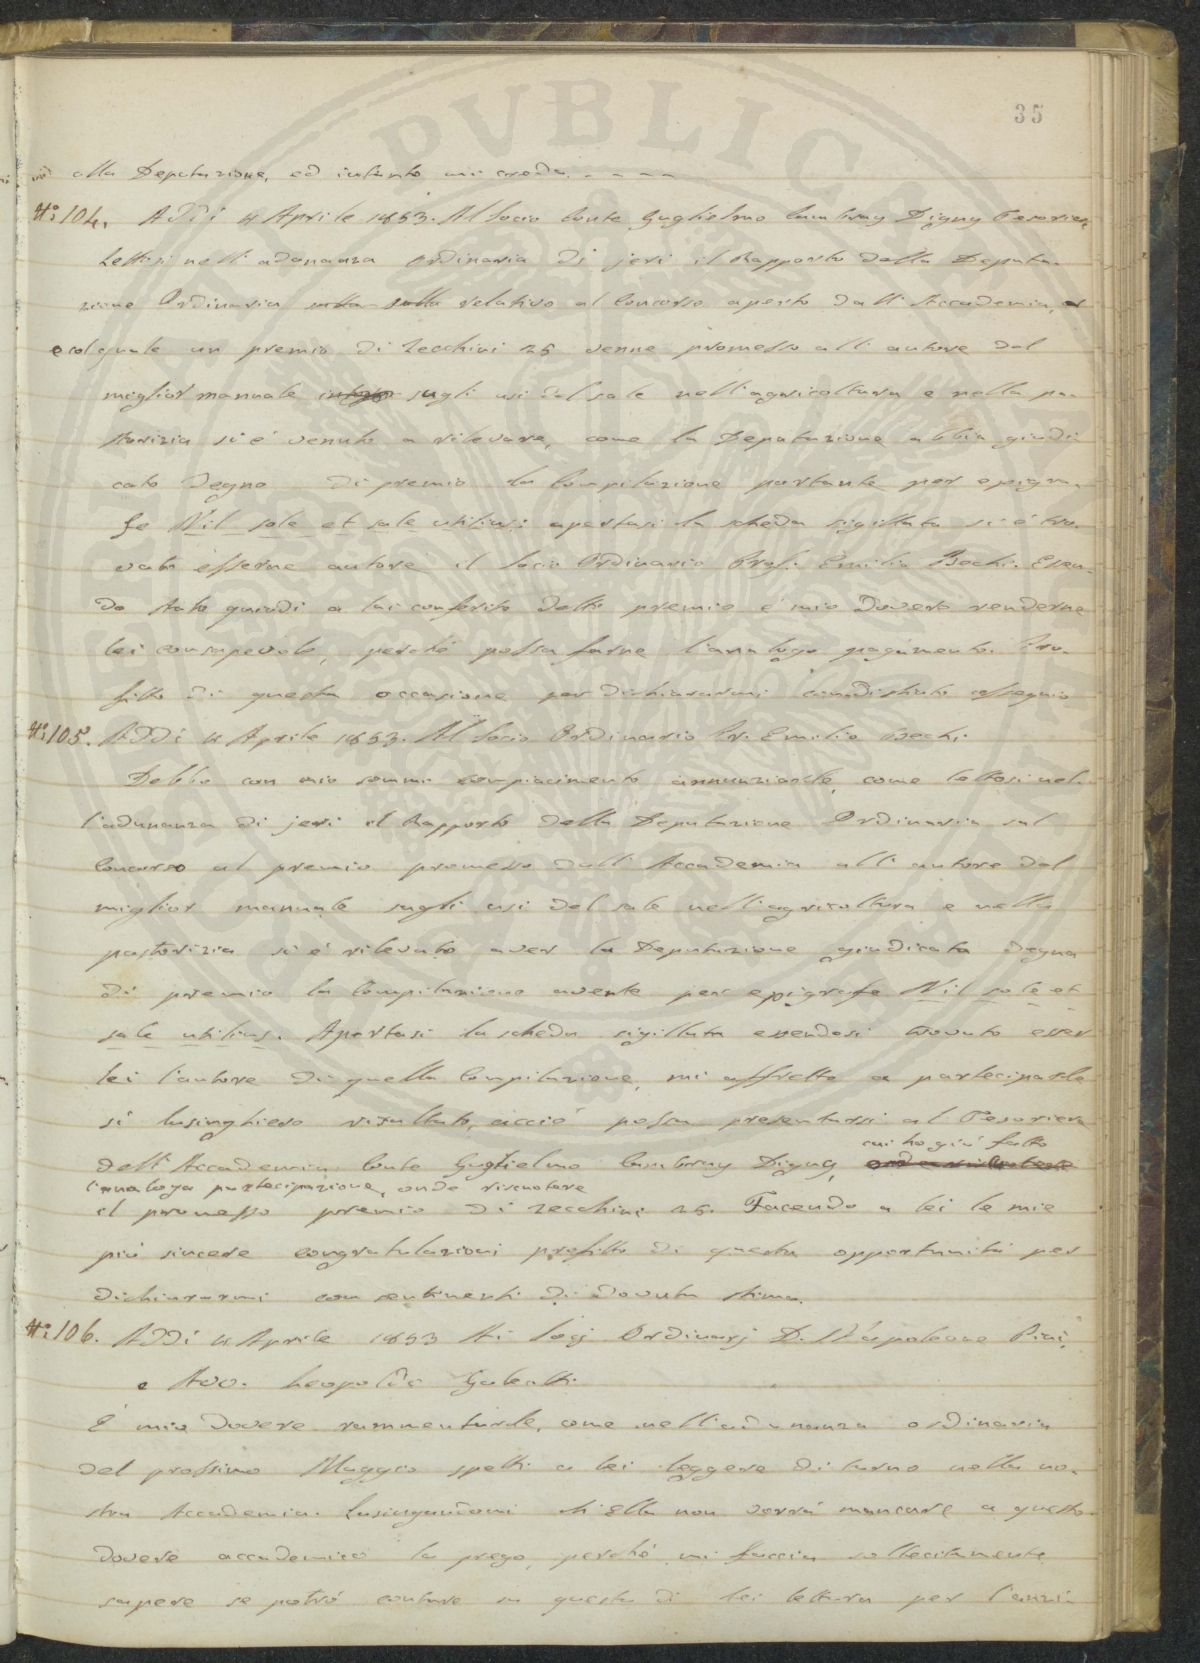 35
alla Deputazione, ed intanto mi creda. - - - -
N.° 104. Addì 4 Aprile 1853. Al Socio Conte Guglielmo Cambray Digny Tesoriere
Lettosi nell'adunanza Ordinaria di jeri il Rapporto della Deputa-
zione Ordinaria sulla sulla relativo al Concorso aperto dall'Accademia,
e col quale un premio di Zecchini 25 venne promesso all'autore del
miglior manuale sugli usi del sale nell'agricoltura e nella pa-
storizia si è venuto a rilevare, come la Deputazione abbia giudi-
cato degno di premio la Compilazione portante per epigra-
fe Nil sole et sale utilius: apertasi la scheda sigillata si è tro-
vato esserne autore il Socio Ordinario Prof. Emilio Bechi. Essen-
do stato quindi a lui conferito detto premio è mio dovere renderne
Lei consapevole, perché possa farne l'analogo pagamento. Pro-
fitto di questa occasione per dichiararmi con distinto ossequio
N.° 105. Addì 4 Aprile 1853. Al Socio Ordinario Pr. Emilio Bechi.
Debbo con mio sommo compiacimento annunziarle, come lettosi nel-
l'adunanza di jeri il Rapporto della Deputazione Ordinaria sul
Concorso al premio promesso dall'Accademia all'autore del
miglior manuale sugli usi del sale nell'agricoltura e nella
pastorizia si è rilevato aver la Deputazione giudicata degna
di premio la Compilazione avente per epigrafe Nil sole et
sale utilius. Apertasi la scheda sigillata essendosi trovato esser
Lei l'autore di quella Compilazione, mi affretto a parteciparle
sì lusinghiero resultato, acciò possa presentarsi al Tesoriere
cui ho già fatto
dell'Accademia Conte Guglielmo Cambray Digny,
l'analoga partecipazione, onde riscuotere
il promesso premio di Zecchini 25. Facendo a Lei le mie
più sincere congratulazioni profitto di questa opportunità per
dichiararmi con sentimenti di dovuta stima.
N.° 106. Addì 4 Aprile 1853 Ai Socj Ordinarj D. Napoleone Pini,
e Avv. Leopoldo Galeotti.
È mio dovere rammentarle, come nell'adunanza ordinaria
del prossimo Maggio spetti a Lei leggere di turno nella no-
stra Accademia. Lusingandomi ch'Ella non vorrà mancare a questo
dovere accademico la prego, perché mi faccia sollecitamente
sapere se potrò contare su questa di Lei lettura per l'anzi-